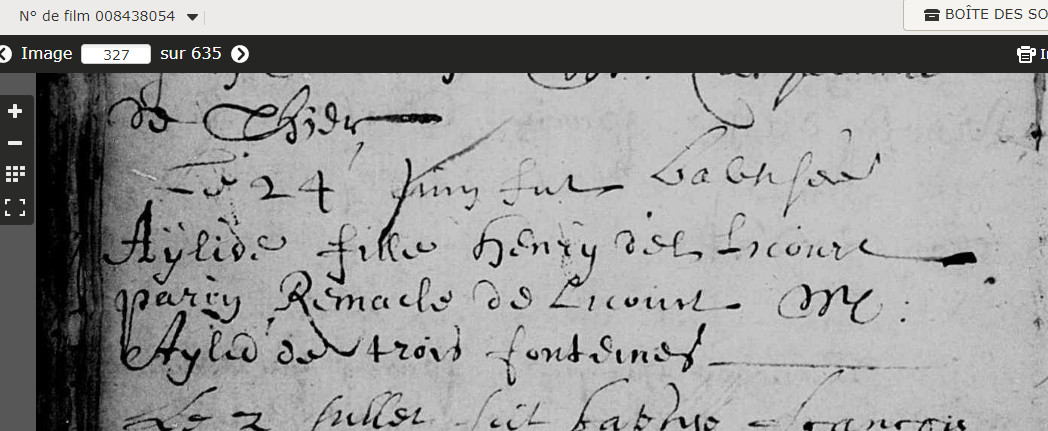 N° de film 008438054
BOÎTE DES SO
Image 327 sur 635
de Thier
Le 24 Juin fut baptisée
Aÿlide fille Henry del Licourt
parin Remacle de Licourt M:
Aylid de trois fonteines
Le 2 Jullet fut baptisé François